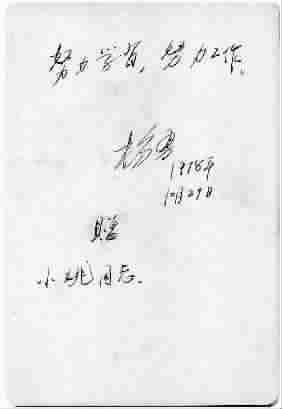 努力学习，努力工作。
1978年
10月29日
赠
小姚同志.